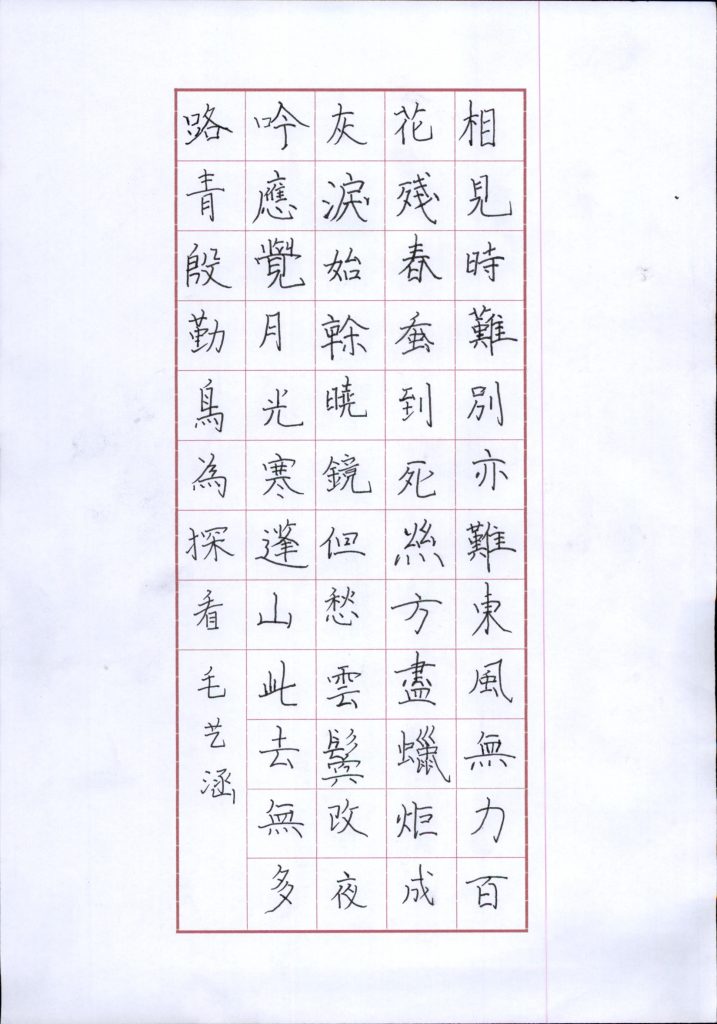 相見時難別亦難東風無力百
花殘春蚕到死絲方盡蠟炬成
灰淚始榦曉鏡但愁雲鬓改夜
吟應覺月光寒蓬山此去無多
路青殷勤鳥為探看
毛艺涵